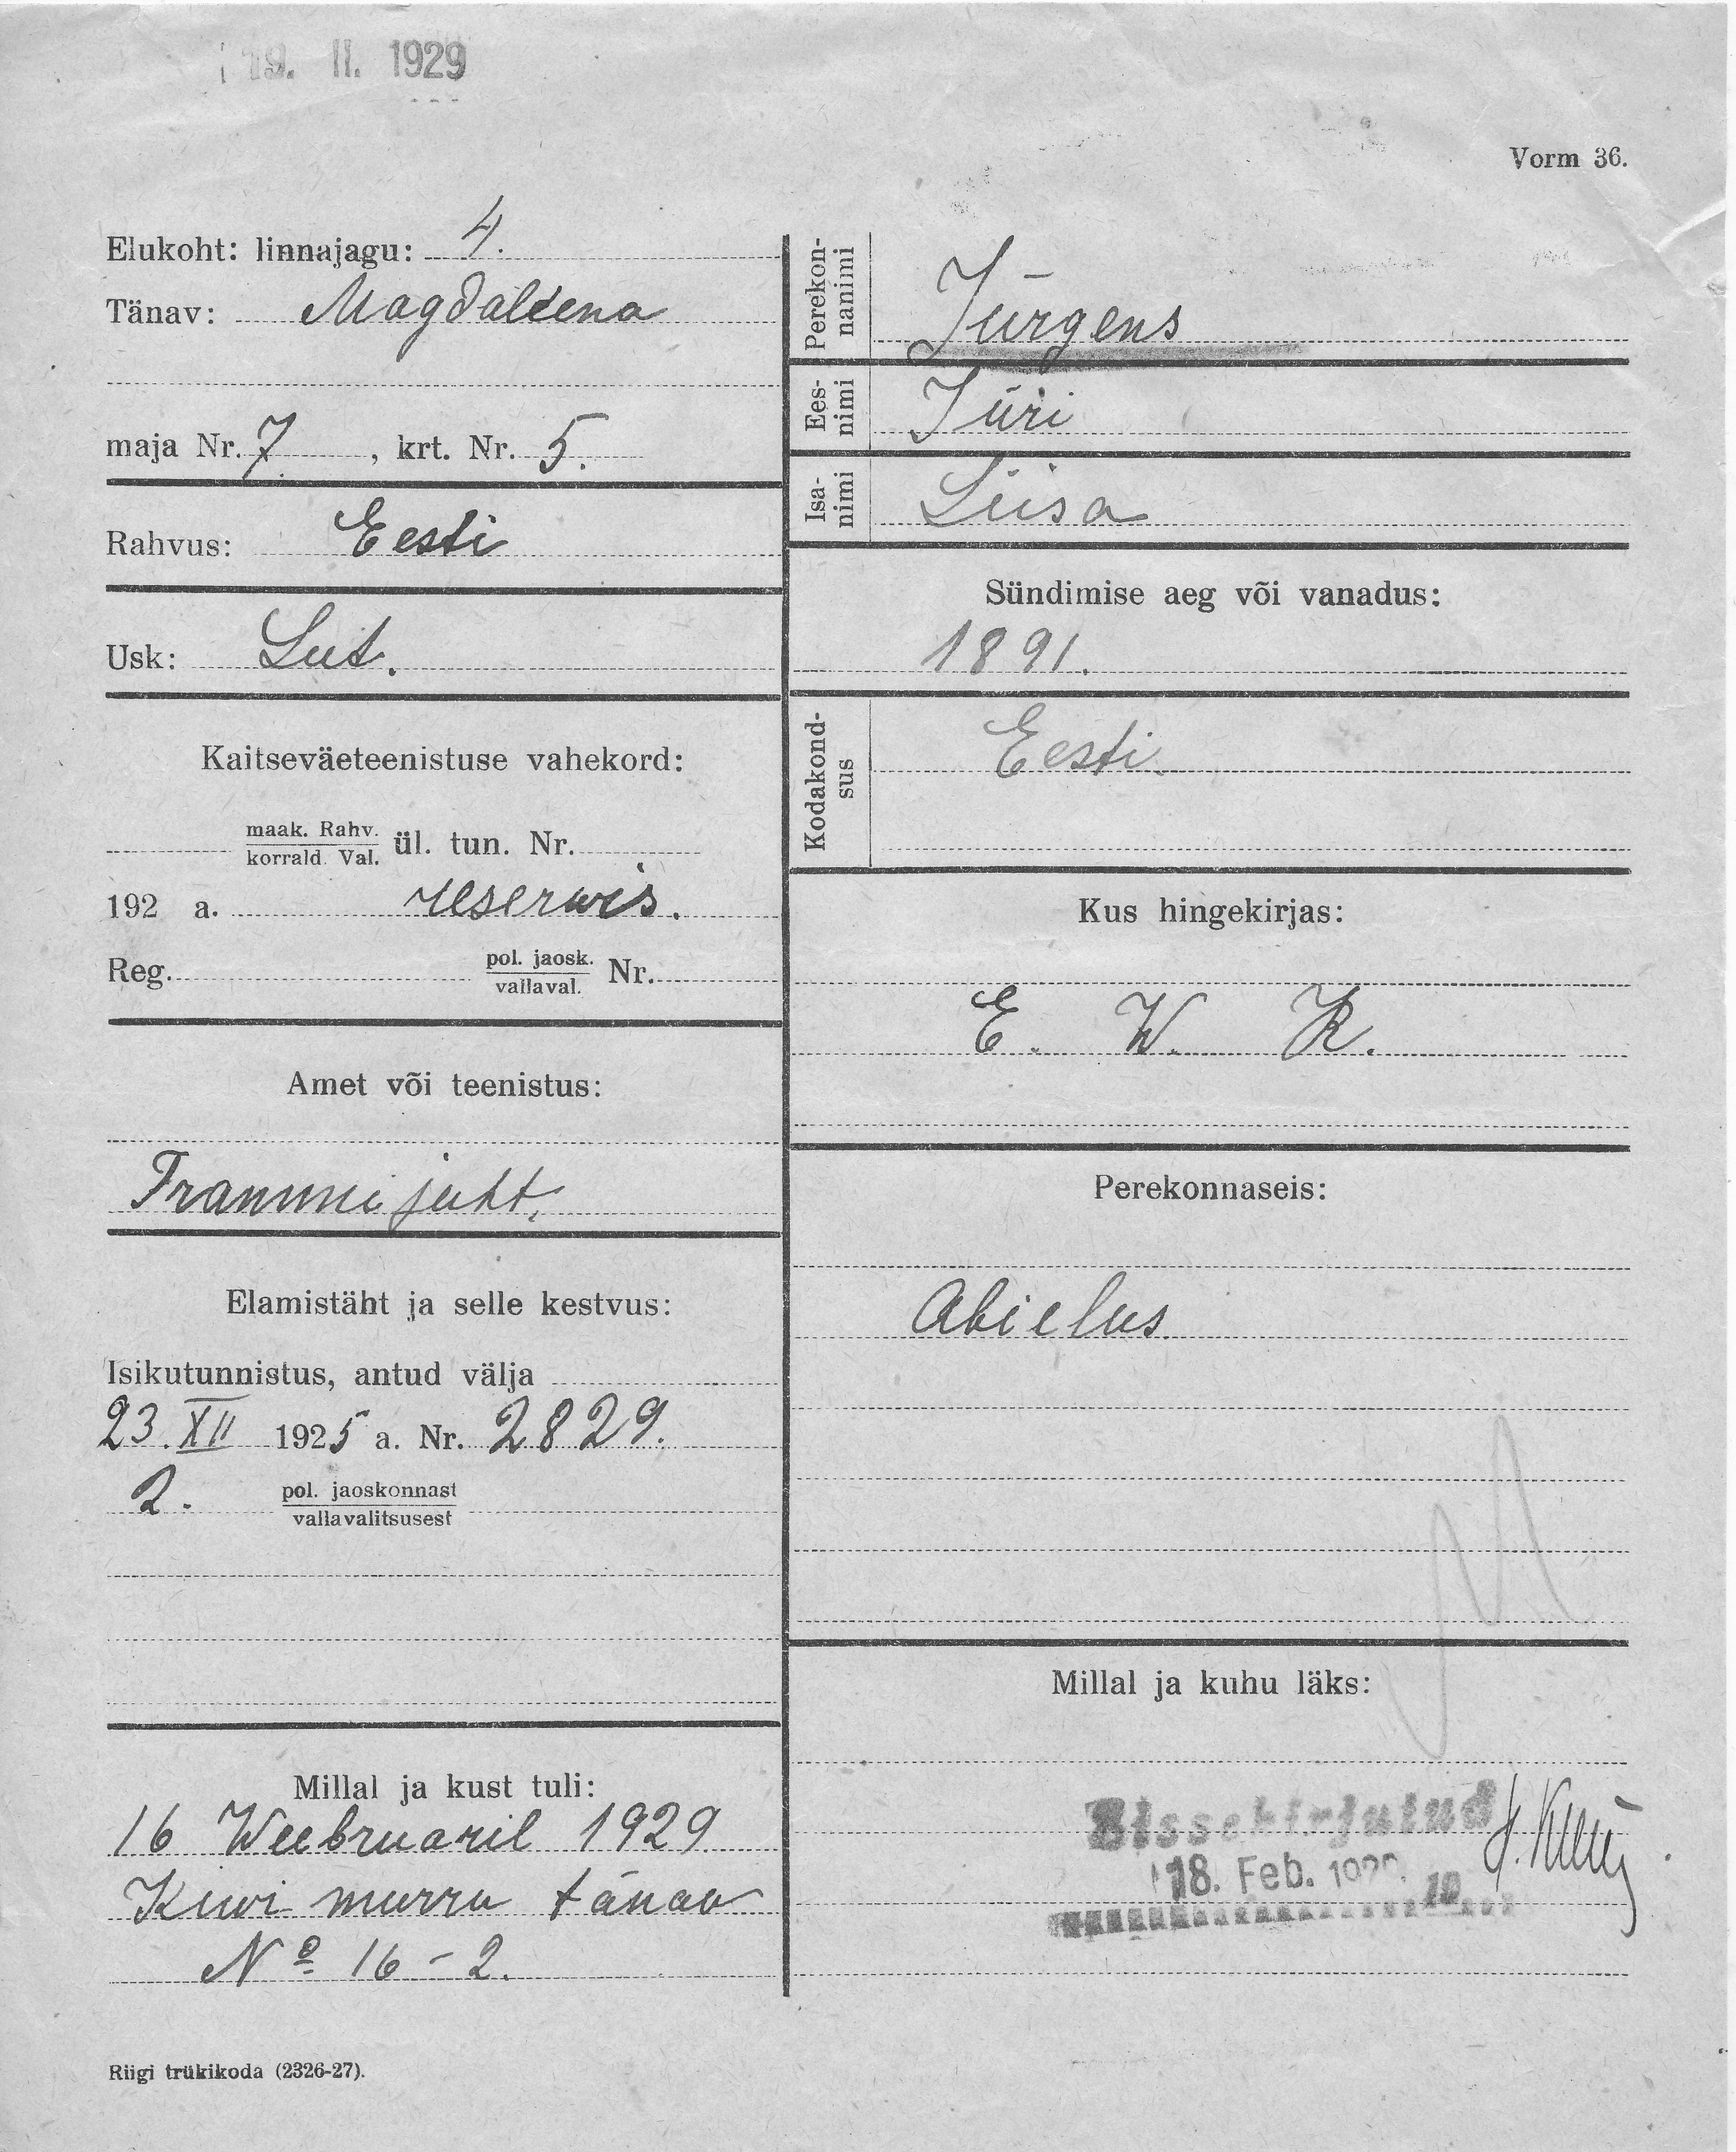 19. II. 1929
Vorm 36.
Elukoht: linnajagu: 4.
Tänav: Magdaleena
maja Nr. 7, krt. Nr. 5.
Rahvus: Eesti
Usk: Lut.
Kaitseväeteenistuse vahekord:
maak. Rahv.
korrald. Val. ül. tun. Nr.
192 a. reserwis.
Reg. pol. jaosk. Nr.
vallaval.
Amet või teenistus:
Trammi juht.
Elamistäht ja selle kestvus:
Isikutunnistus, antud välja
23. XII 1925 a. Nr. 2829.
2. pol. jaoskonnast
vallavalitsusest
Millal ja kust tuli:
16 Weebruaril 1929
Kiwi murru tänav
Nº 16-2.
Riigi trükikoda (2326-27).
Perekon-
nanimi
Jürgens
Ees-
nimi
Jüri
Isa-
nimi
Liisa
Sündimise aeg või vanadus:
1891.
Kodakond-
sus
Eesti.
Kus hingekirjas:
E. W. R.
Perekonnaseis:
Abielus
Millal ja kuhu läks:
Sissekirjutud
18. Feb. 19